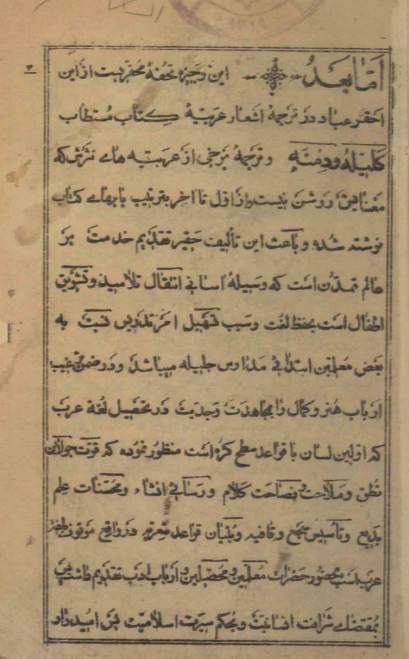 ۳
امّا بعدُ این وجیزه تحفهٔ محقریست از این
احقر عباد در ترجمهٔ اشعار عربیّهٔ کتاب مُستطاب
کلیله و دمنه و ترجمهٔ برخی از عربیّه های نثرش که
معنایش روشن نیست و از اوّل تا آخر بترتیب بابهای کتاب
نوشته شده و باعث این تألیف حقیر تقدیم خدمت بر
عالم تمدّن است که وسیلهٔ آسانی انتقال تلامیذ و تشویق
اطفال است بحفظ لغت و سبب تسهیل امر تدریس نسبت به
بعض معلّمین ابتدائی مدارس جلیله میباشد و در ضمن ترغیب
ارباب هنر و کمال را بمجاهدت و جدّیّت در تحصیل لغة عرب
که اوّلین لسان با قواعد سطح کره است منظور نموده که قوّت جولان
نطق و ملاحت و فصاحت کلام و رسائی انشاء و محسّنات علم
بدیع و تأسیس سجع و قافیه و بنیان قواعد در واقع موقوف
عرب است بحضور حضرات معلّمین و محصّلین و ارباب ادب تقدیم داشت
بمقتضای شرافت انسانیت و بحکم سیرت اسلامیت امید دارد